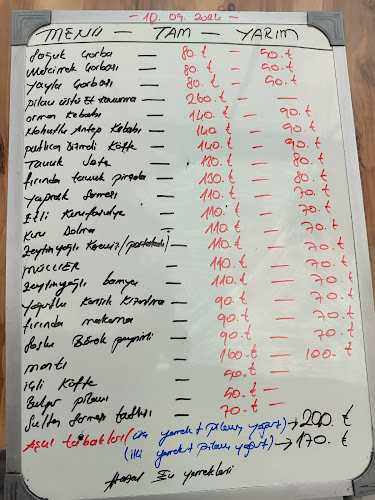 10.09.2024
MENÜ — TAM — YARIM
Soğuk Çorba — 80.t — 50.t
Mercimek Çorbası — 80.t — 50.t
Yayla Çorbası — 80.t — 50.t
pilav üstü Et kavurma — 260.t —
orman Kebabı — 140.t — 90.t
Nohutlu Antep Kebabı — 140.t — 90.t
patlıcan Dizmeli Köfte — 140.t — 90.t
Tavuk Sote — 120.t — 80.t
fırında tavuk pirzola — 130.t — 80.t
yaprak Sarması — 110.t — 70.t
Etli Karnıbahar — 110.t — 70.t
Kuru Dolma — 110.t — 70.t
Zeytinyağlı Kereviz (portakallı) — 110.t — 70.t
MÜCVER — 110.t — 70.t
Zeytinyağlı bamya — 110.t — 70.t
yoğurtlu Karışık Kızartma — 90.t — 70.t
fırında makarna — 90.t — 70.t
Börek peynirli — 90.t — 70.t
mantı — 160.t — 100.t
içli Köfte — 50.t —
Bulgur pilavı — 50.t —
Sultan Sarması tatlısı — 70.t —
Aşçı tabakları (üç yemek + pilav, yoğurt) → 200.t
(iki yemek + pilav, yoğurt) → 170.t
Ev yemekleri